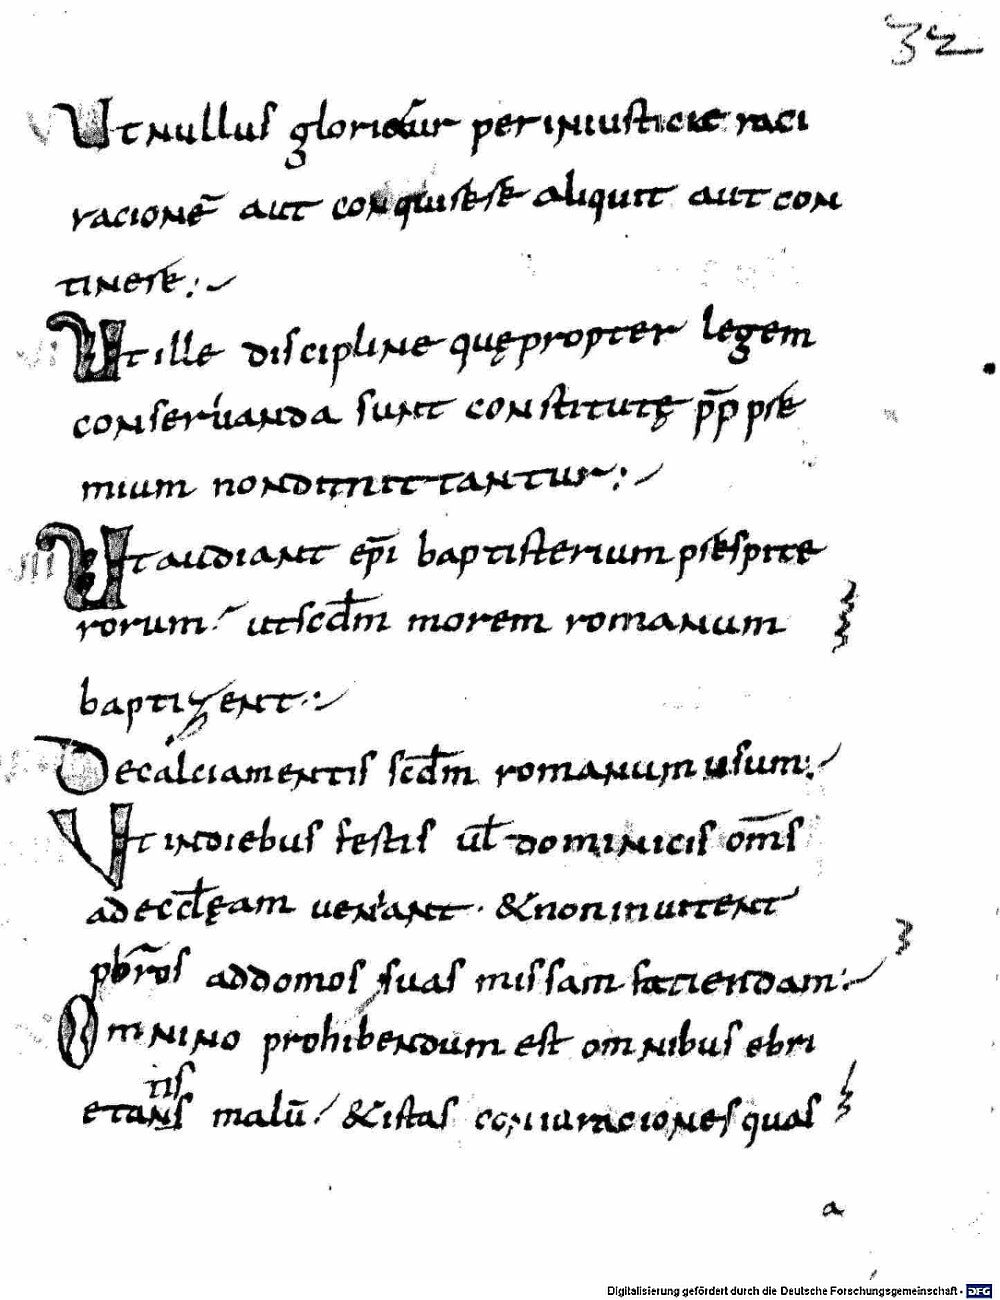 32
Ut nullus glorietur per iniusticie raci
racionē aut conquirere aliquit aut con
tinere:
Ut ille discipline quę propter legem
conseruanda sunt constitutę p̄p pre
mium non dimittantur:
Ut audiant ep̄i baptisterium presbite
rorum ut scd̄m morem romanum
baptizent:
De calciamentis scd̄m romanum usum:
Ut in diebus festis uł dominicis om̄s
ad eccłęam ueniant · & non inuitent
pb̄ros ad domos suas missam faciendam:
Omnino prohibendum est omnibus ebri
tis
etans malū & istas coniuraciones quas
a
Digitalisierung gefördert durch die Deutsche Forschungsgemeinschaft - DFG